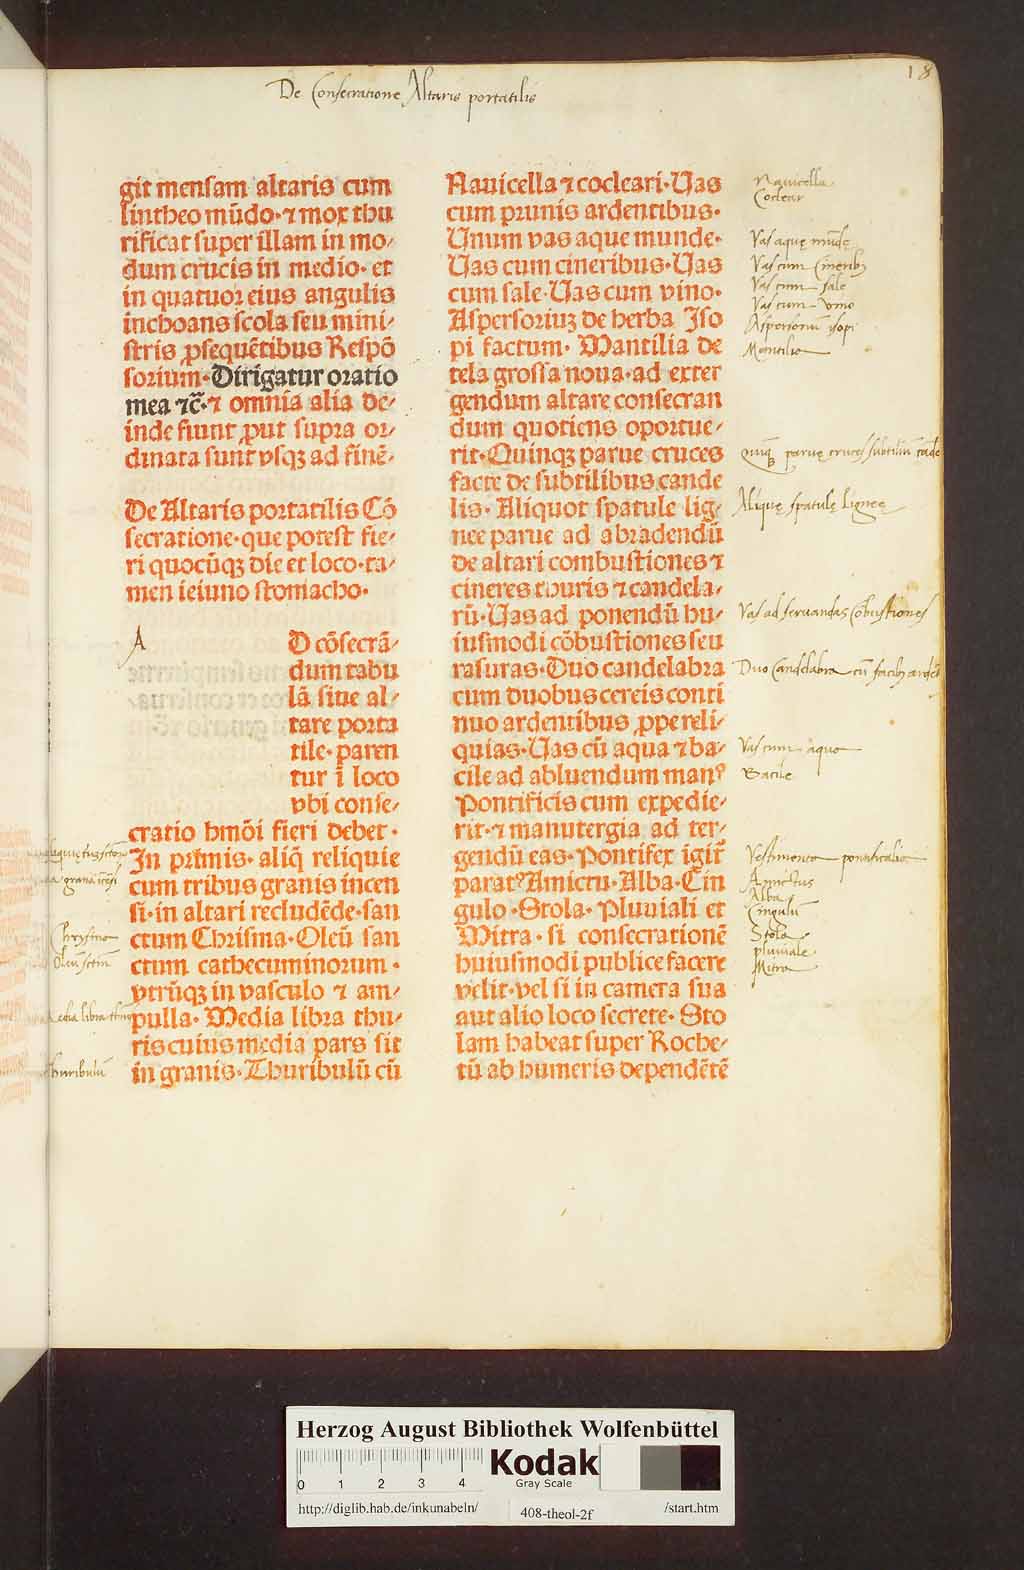 De Consecratione Altaris portatilis
18
git mensam altaris cum
lintheo mūdo· ⁊ mox thu
rificat super illam in mo/
dum crucis in medio· et
in quatuor eius angulis
inchoans scola seu mini/
stris ꝓsequētibus Respō
sorium· Dirigatur oratio
mea ⁊c̄· ⁊ omnia alia de/
inde fiunt ꝓut supra or/
dinata sunt vsqꝫ ad finē·
De Altaris portatilis Cō
secratione· que potest fie/
ri quocūqꝫ die et loco· ta/
men ieiuno stomacho·
A
D cōsecrā/
dum tabu
lā siue al/
tare porta
tile· paren
tur ī loco
vbi conse/
cratio hmōi fieri debet·
In primis· aliq̄ reliquie
cum tribus granis incen
si· in altari recludēde· san
ctum Chrisma· Oleū san
ctum cathecuminorum·
vtrūqꝫ in vasculo ⁊ am/
pulla· Media libra thu/
ris cuius media pars sit
in granis· Thuribulū cū
Chrysma
Oleū sctm
Media libra thur
thuribulū
Nauicella ⁊ cocleari· Uas
cum prunis ardentibus·
Unum vas aque munde·
Uas cum cineribus· Uas
cum sale· Uas cum vino·
Aspersoriuꝫ de herba Iso
pi factum· Mantilia de
tela grossa noua· ad exter
gendum altare consecran
dum quotiens oportue/
rit· Quinqꝫ parue cruces
facte de subtilibus cande
lis· Aliquot spatule lig/
nee parue ad abradendū
de altari combustiones ⁊
cineres thuris ⁊ candela/
rū· Uas ad ponendū hu/
iusmodi cōbustiones seu
rasuras· Duo candelabra
cum duobus cereis conti
nuo ardentibus ꝓpe reli/
quias· Uas cū aqua ⁊ ba/
cile ad abluendum manꝰ
Pontificis cum expedie/
rit· ⁊ manutergia ad ter/
gendū eas· Pontifex igit̄
paratꝰ Amictu· Alba· Cin
gulo· Stola· Pluuiali et
Mitra· si consecrationē
huiusmodi publice facere
velit· vel si in camera sua
aut alio loco secrete· Sto
lam habeat super Roche/
tū ab humeris dependētē
Nauicella
Coclear
Vas aquę mūdę
Vas cum Cineribꝫ
Vas cum sale
Vas cum vino
Aspersoriū isopi
Mantilia
Quinqꝫ paruę cruces subtiliū cādel
Aliquę spatulę ligneę
Vas ad seruandas Cōbustiones
Duo Candelabra cū facibꝫ ardēt
Vas cum aqua
Bacile
Vestimenta pontificalia
Amictus
Alba
Cingulū
Stola
pluuiale
Mitra
Herzog August Bibliothek Wolfenbüttel
0 1 2 3 4
Kodak
Gray Scale
http://diglib.hab.de/inkunabeln/
408-theol-2f
/start.htm